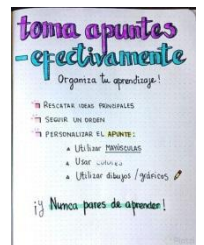 toma apuntes
-efectivamente
Organiza tu aprendizaje!
RESCATAR IDEAS PRINCIPALES
SEGUIR UN ORDEN
PERSONALIZAR EL APUNTE:
Utilizar MAYÚSCULAS
Usar colores
Utilizar dibujos / gráficos
¡y Nunca pares de aprender!